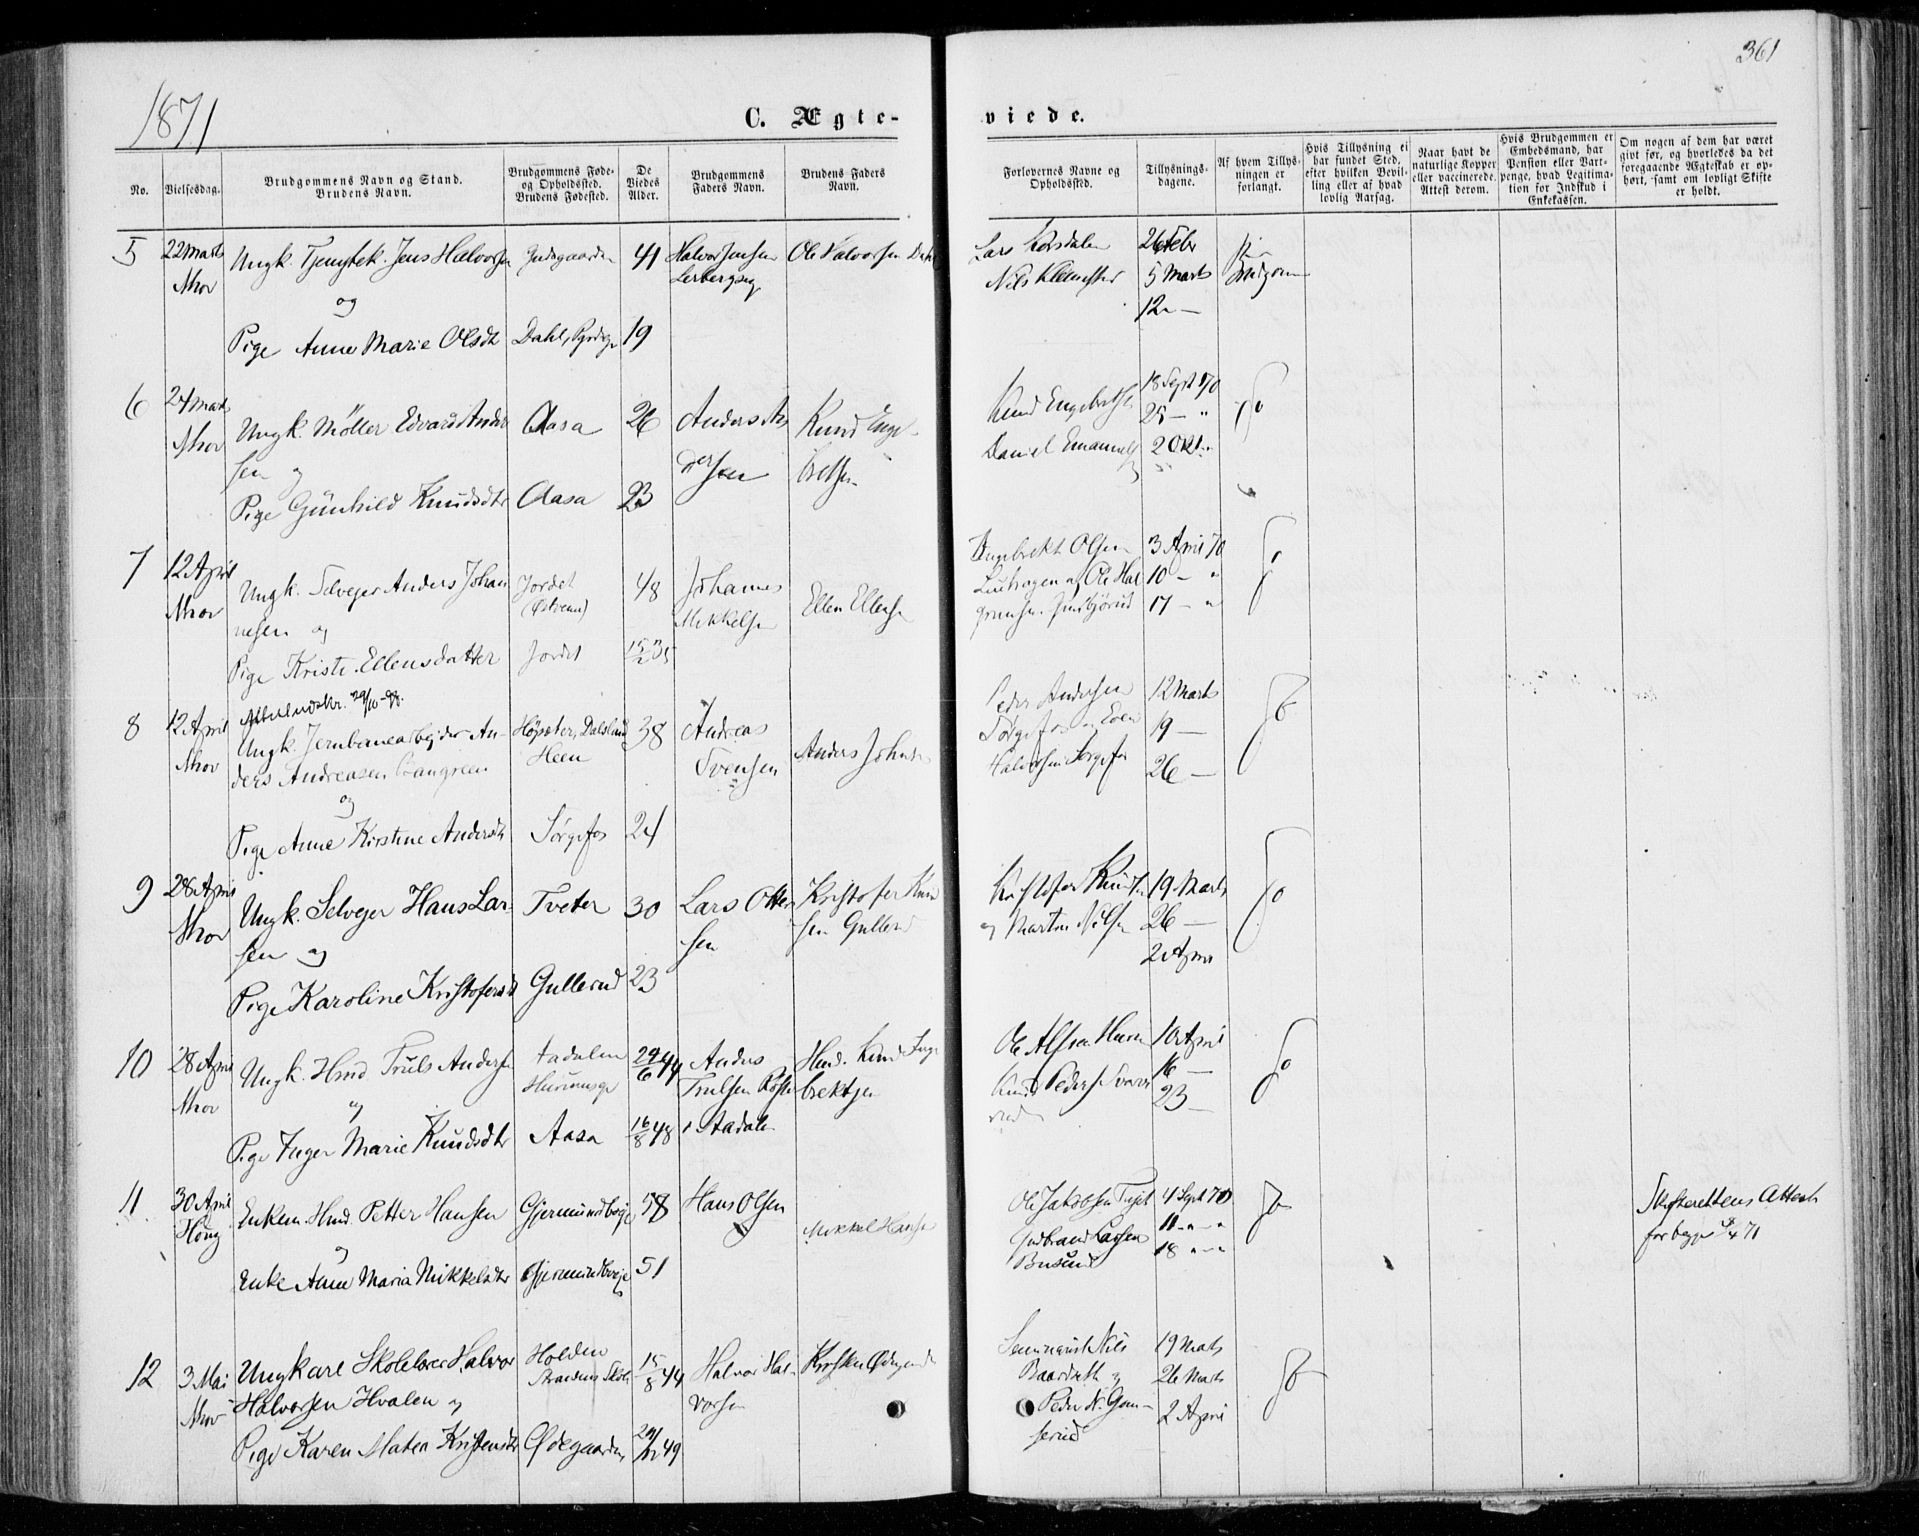 1871
361
C. Ægte-
viede.
No.
Vielsesdag.
Brudgommens Navn og Stand.
Brudens Navn.
Brudgommens Føde-
og Opholdssted.
Brudens Fødested.
De
Viedes
Alder.
Brudgommens
Faders Navn.
Brudens Faders
Navn.
Forlovernes Navne og
Opholdssted.
Tillysnings-
dagene.
Af hvem Tillys-
ningen er
forlangt.
Hvis Tillysning ei
har fundet Sted,
efter hvilken Bevil-
ling eller af hvad
lovlig Aarsag.
Naar havt de
naturlige Kopper
eller vaccinerede.
Attest derom.
Hvis Brudgommen er
Embedsmand, har
Pension eller Vart-
penge, hvad Legitima-
tion for Indskud i
Enkekassen.
Om nogen af dem har været
givt før, og hvorledes da det
foregaaende Ægteskab er op-
hørt, samt om lovligt Skifte
er holdt.
5
22 Marts
Nhov
Ungk. Jens Halvorsen
og
Pige Anne Marie Olsdt
Dahl,
41
19
Ole Halvorsen Dahl
Lars
Nils
26 Febr
5 Marts
12 —
6
24 Marts
Nhov
Ungk. Møller Edvard Ander
sen og
Pige Günhild Knudsdtr
Aasa
Aasa
26
23
Anders An
dersen
Knud Enge-
bretsen
Knud Engebretsen
Daniel Emanuels
18 Sept 70
25 — "
2 Okt "
7
12 April
Nhov
Ungk. Selvejer Anders Johan
nesen og
Pige Kristi Ellensdatter
Jordet
Jordet
48
35
Johannes
Mikkelsen
Ellen Ellensen
Engebrekt Olsen
3 April 70
10 — "
17 — "
8
12 April
Nhov
29/10-98.
Ungk. Jernbanearbejder An-
ders Andreasen
og
Pige Anne Kirstine Andersdt
Høysæter, Dalsland
Heen
Sørgefos
38
24
Andreas
Svensen
Anders Johnsen
Peder Andersen
Sørgefos og Even
Halvorsen Sørgefos
12 Marts
19 —
26 —
9
28 April
Nhov
Ungk. Selvejer Hans Lar-
sen og
Pige Karoline Kristofersdt
Tveter
Gullerud
30
23
Lars Otter
sen
Kristofer Knud
sen Gullerud
Kristofer Knudsen
og Martin Nilsen
19 Marts
26 —
2 April
10
28 April
Nhov
Ungk. Hmd. Truls Andersen
og
Pige Inger Marie Knudsdtr
Aadalen
Aasa
29/6 44
16/8 48
Anders
Trulsen
i Aadalen
Hmd. Knud Enge
brektsen
Ole Alfsen
Knud Peders
10 April
16 —
23 —
11
30 April
Høng
Enkem. Hmd. Petter Hansen
og
Enke Anne Maria Mikkelsdtr
Gjermundboeje
Gjermundboeje
58
51
Hans Olsen
Mikkel Hansen
Ole Jakobsen
Gudbrand Larsen
Busund
4 Sept 70
11 — "
18 — "
Skifterettens Attest
for begge 71
12
3 Mai
Nhov
Ungkarl Skolelærer Halvor
Halvorsen Hvalen og
Pige Karen Maten Kristensdtr
Holden
Ødegaarden
15/8 44
49
Halvor Hal-
vorsen
Kristen Ødegaarden
Seminarist Nils
Baardseth og
Peder N. Gam-
serud
19 Marts
26 Marts
2 April